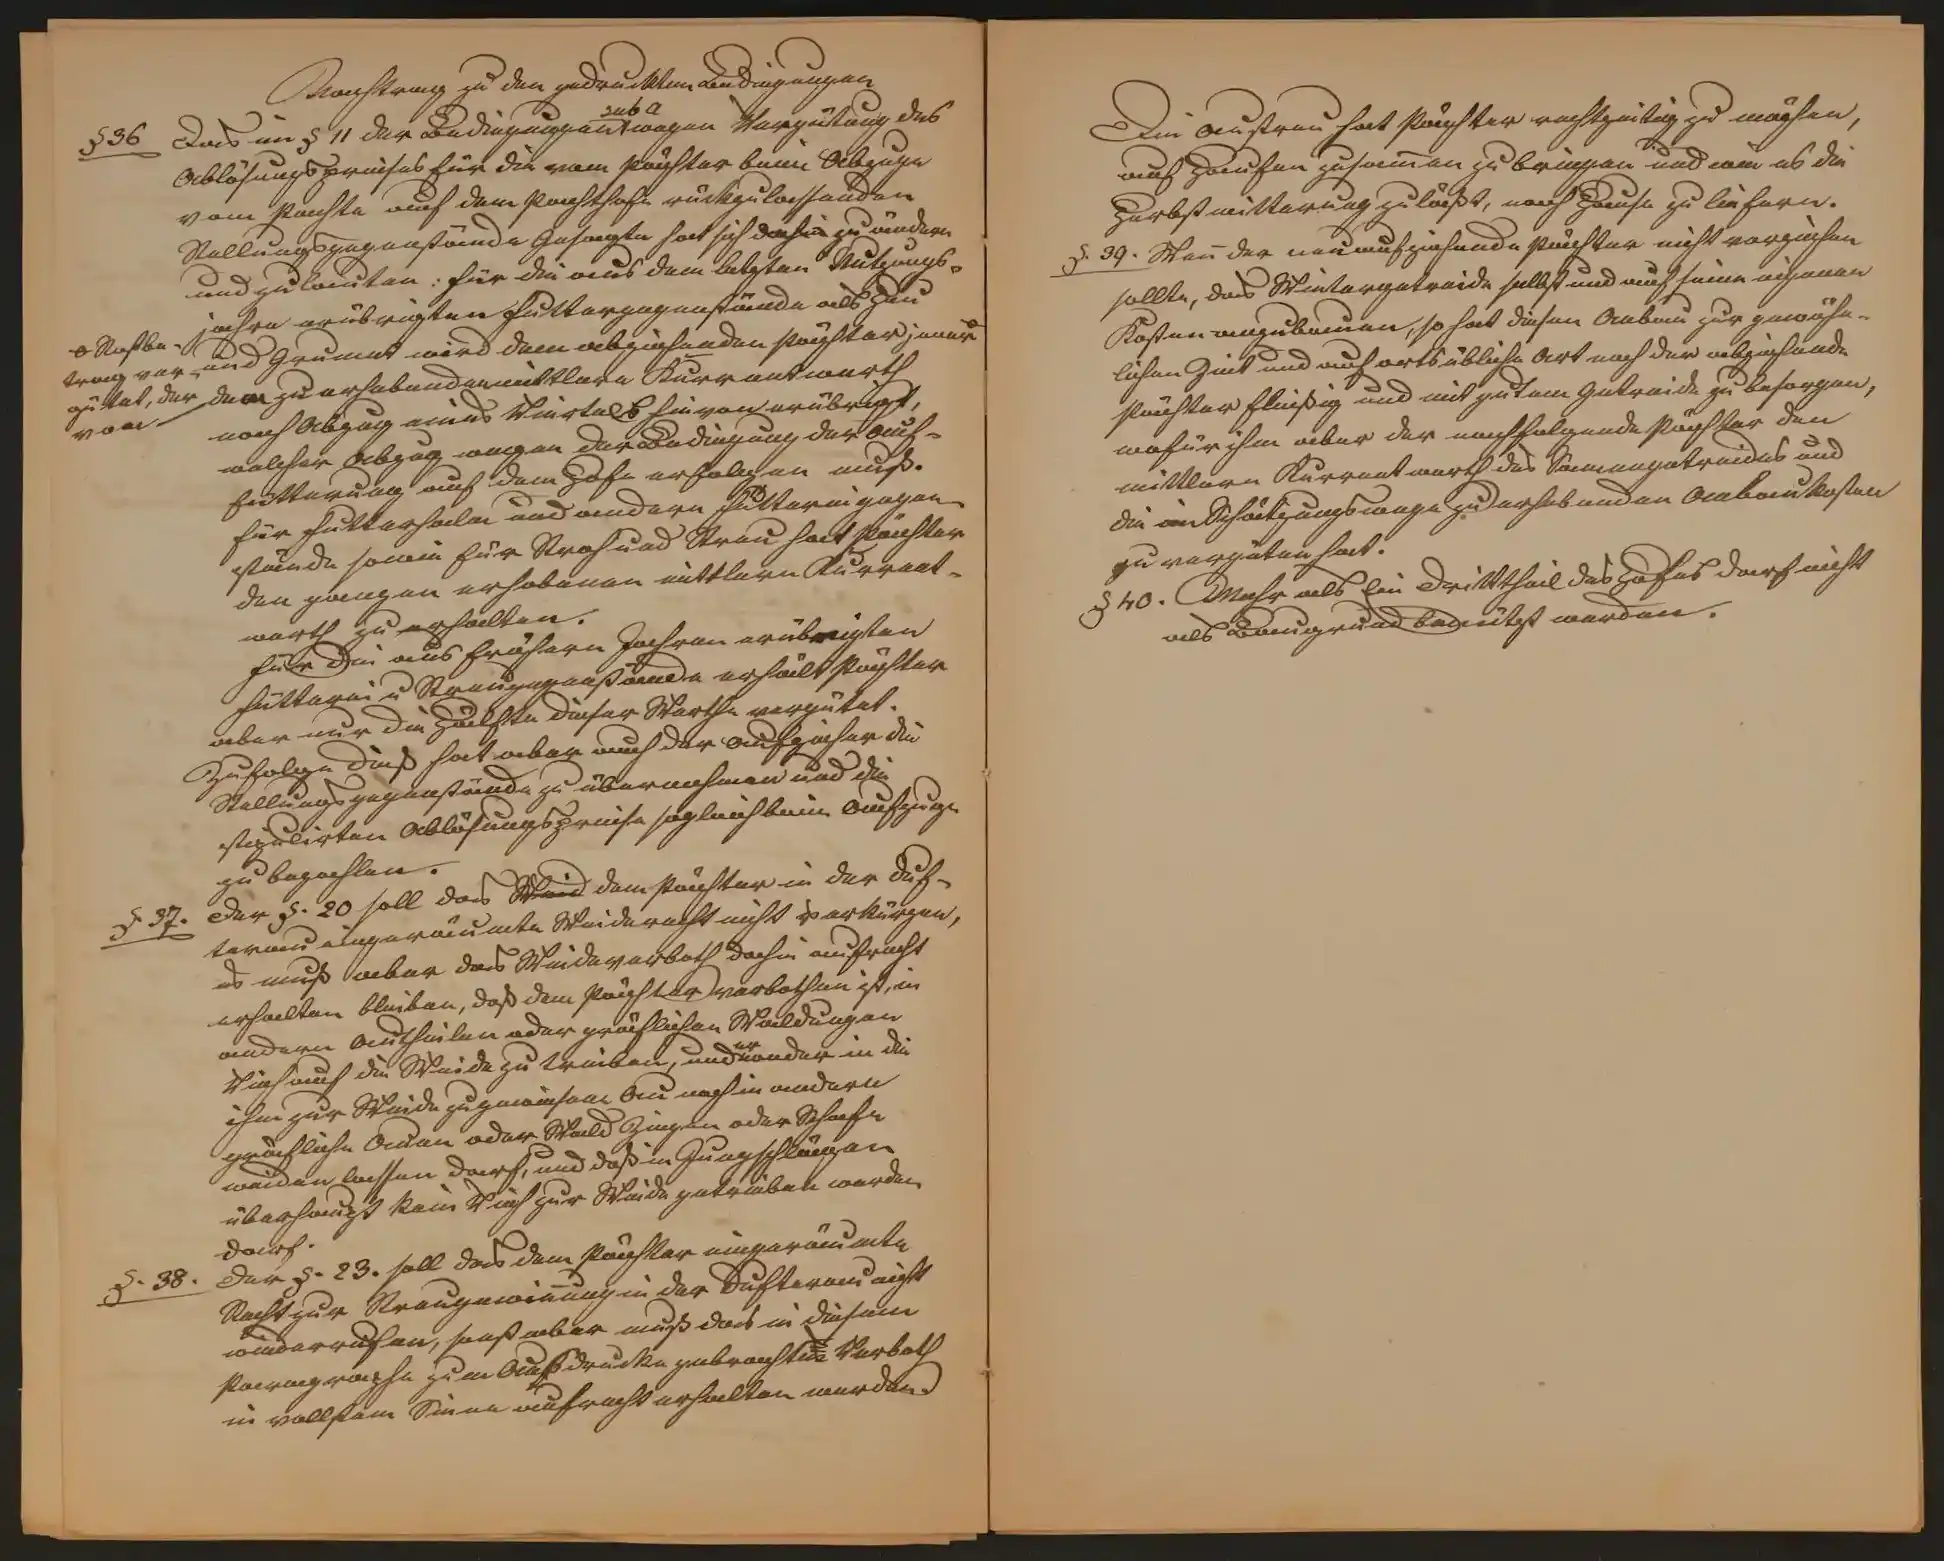 Nachtrag zu den gedruckten Bedingungen
sub a
§ 36 Das im § 11 der Bedingungen wegen Vergütung des
Ablösungspreises für die vom Pächter beim Abzuge
vom Pachte auf dem Pachthofe rückzulassenden
Stellungsgegenstände Gesagte hat sich dahin zu ändern
und zu lauten: für die aus dem letzten Nutzungs-
jahre erübrigten Futtergegenstände als Heu
und Grumet wird dem abziehenden Pächter jener
Restbe-
trag ver-
gütet, der
vom
dem zu erhebenden mittlern Kurrentwerth
nach Abzug eines Viertels hievon erübrigt,
welcher Abzug wegen der Bedingung der Auf-
fütterung auf dem Hofe erfolgen muß.
für Futterhalm und andern Fütterungsgegen-
stände sowie für Stroh und Streu hat Pächter
den ganzen erhobenen mittlern Kurrent-
werth zu erhalten.
Für die aus frühern Jahren erübrigten
Fütterei u Streugegenstände erhält Pächter
aber nur die Hälfte dieser Werthe vergütet.
Zufolge dieß hat aber auch der Aufzieher die
Stellungsgegenstände zu übernehmen und die
stipulirten Ablösungspreise sogleich beim Aufzuge
zu bezahlen.
§ 37. Der §. 20 soll das Weid dem Pächter in der Duf-
terau eingeräumte Weiderecht nicht verkürzen,
es muß aber das Weideverboth dahin aufrecht
erhalten bleiben, daß dem Pächter verbothen ist, in
andern Autheilen oder gräflichen Waldungen
Vieh auf die Weide zu treiben, und er weder in die
ihm zur Weide zugewiesene Au noch in andern
gräfliche Auen oder Wald Ziegen oder Schafe
weiden lassen darf, und daß in Jungschlägen
überhaupt kein Vieh zur Weide getrieben werden
darf.
§. 38. Der §. 23. soll das dem Pächter eingeräumte
Recht zur Streugewinnung in der Dufterau nicht
widerrufen, sonst aber muß das in diesem
Paragraphe zum Ausdrucke gebrachte Verboth
in vollstem Sinne aufrecht erhalten werden.
Die Austreu hat Pächter rechtzeitig zu mähen,
auf Haufen zusammen zu bringen und wie es die
Herbstwitterung zuläßt, nach Hause zu liefern.
§. 39. Wenn der neu aufziehende Pächter nicht vorziehen
sollte, das Wintergetreide selbst und auf seine eigenen
Kosten anzubauen, so hat diesen Anbau zur gewöhn-
lichen Zeit und auf ortsübliche Art noch der abziehende
Pächter fleißig und mit gutem Getreide zu besorgen,
wofür ihm aber der nachfolgende Pächter den
mittlern Kurrentwerth des Samengetreides und
die im Schätzungswege zu erhebenden Anbaukosten
zu vergüten hat.
§ 40. Mehr als ein Drittheil des Hofes darf nicht
als Baugrund benützt werden.